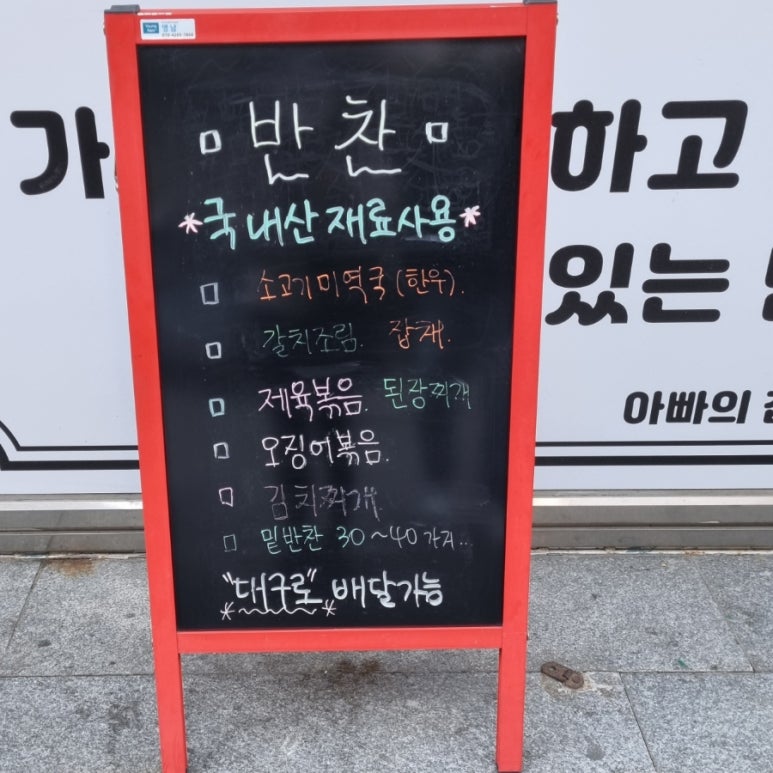 영남
반찬
*국내산재료사용*
소고기미역국(한우).
갈치조림. 잡채.
제육볶음. 된장찌개
오징어볶음.
김치찌개.
밑반찬 30~40가지..
"대구로" 배달가능
가
하고
있는
아빠의